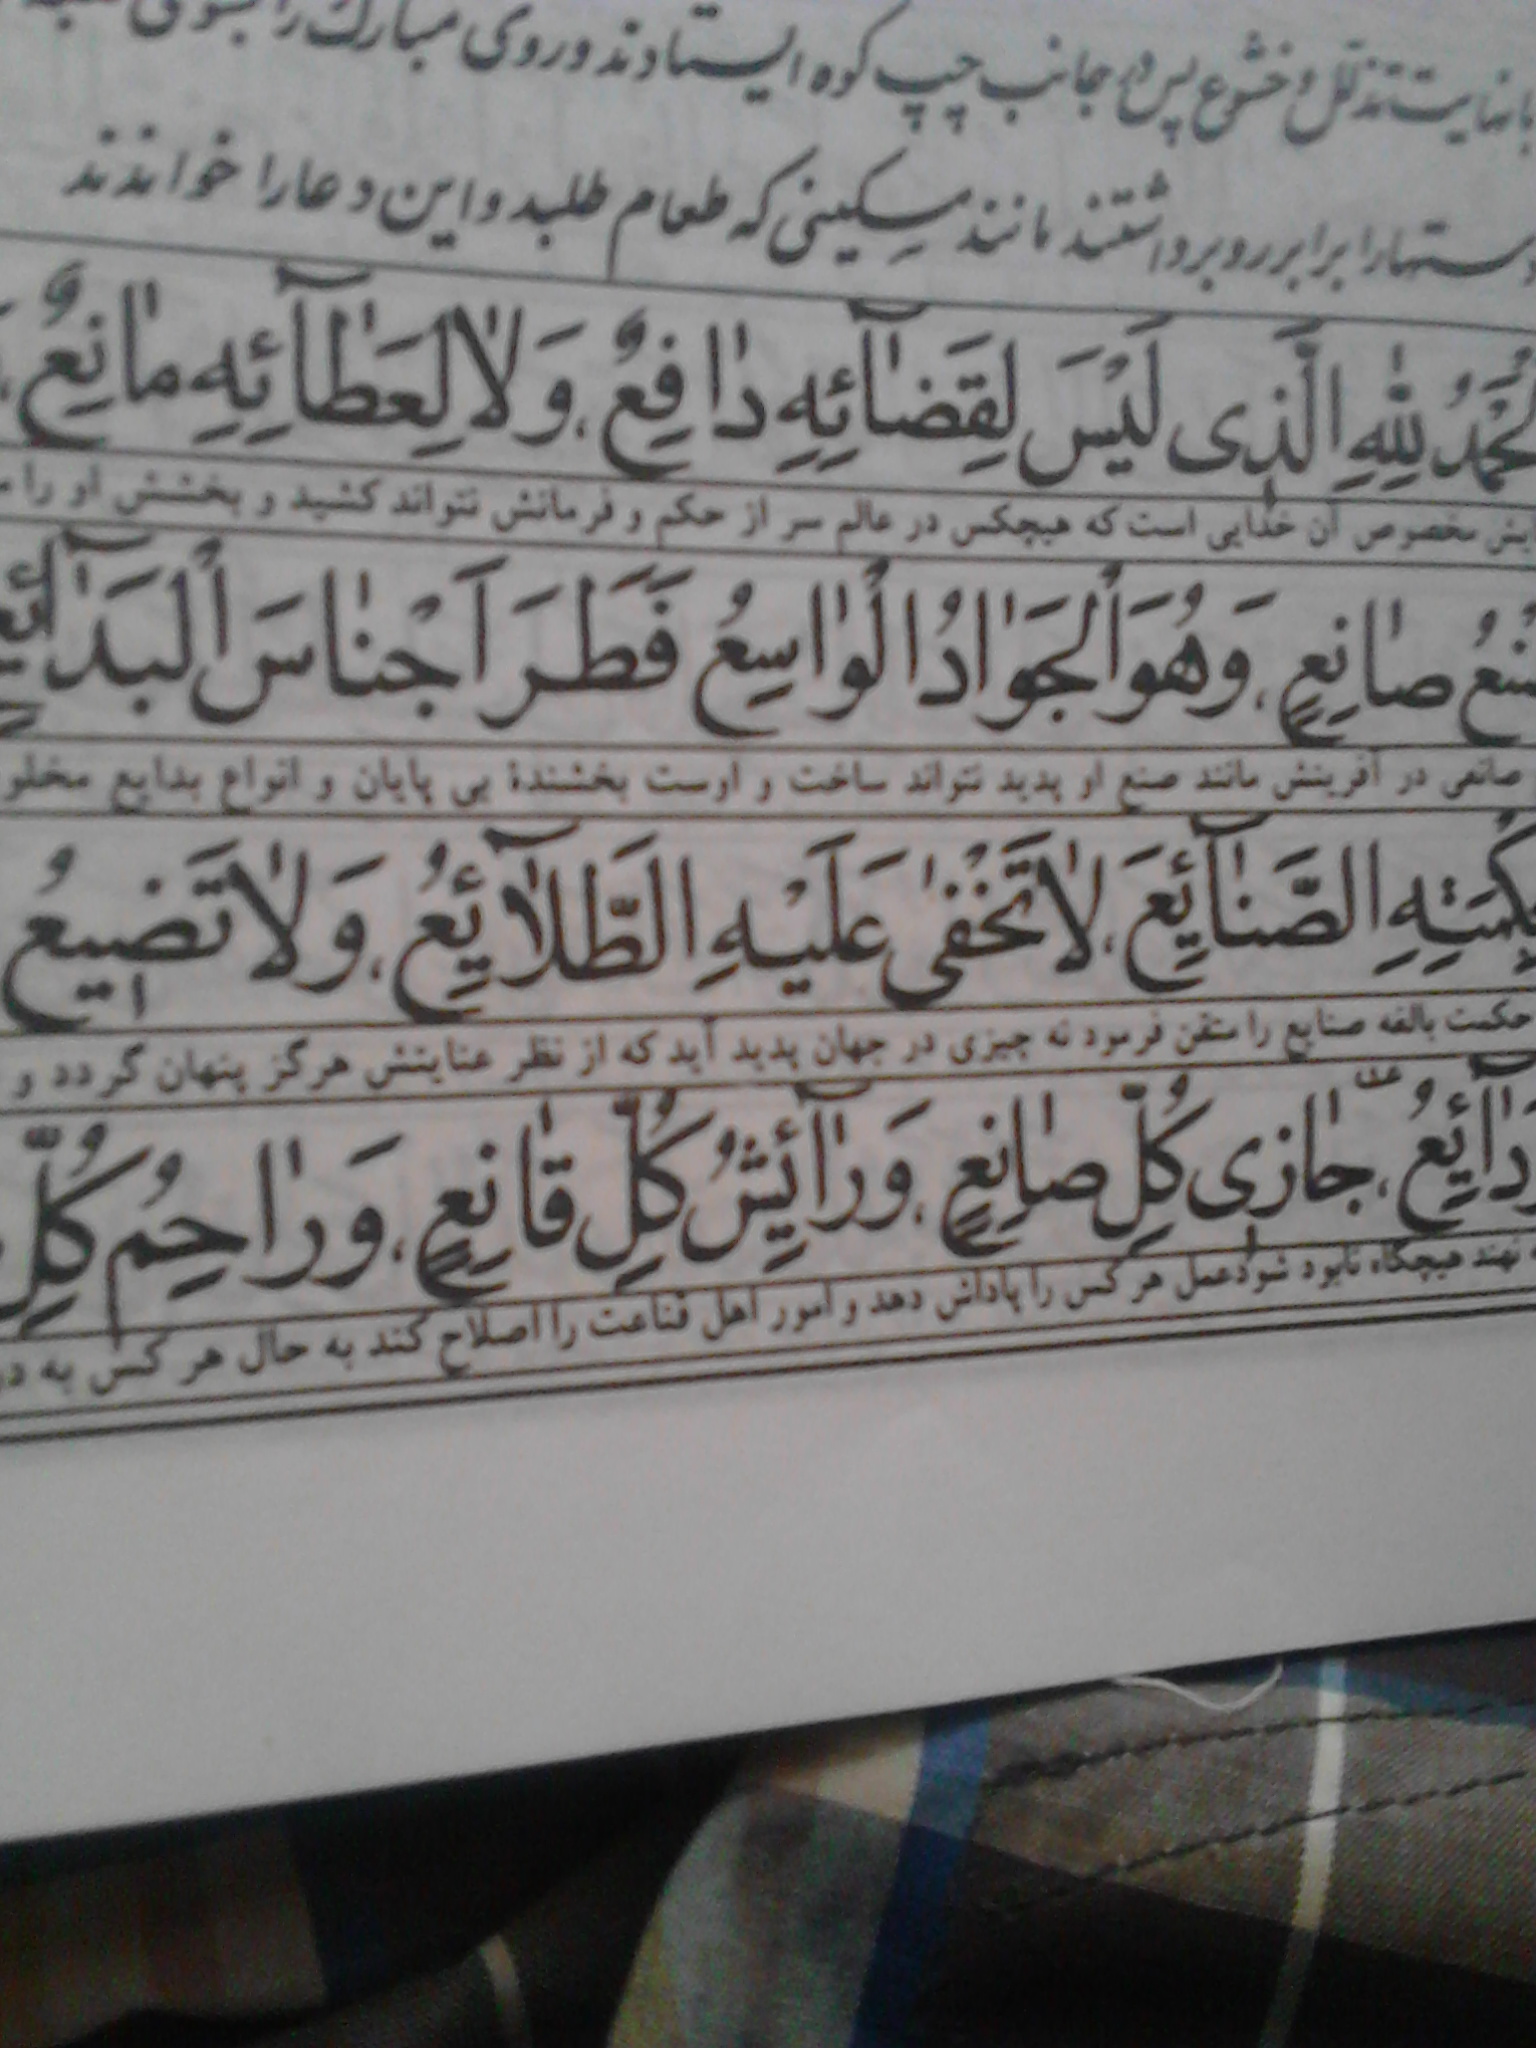 بانهایت تذلل و خشوع پس در جانب چپ کوه ایستادند و روی مبارک را بسوی
دستها را برابر رو برداشتند مانند مسکینی که طعام طلبد و این دعا را خواندند
لْحَمْدُ لِلّٰهِ الَّذى لَيْسَ لِقَضٰآئِهِ دٰافِعٌ، وَلٰا لِعَطٰآئِهِ مٰانِعٌ،
مخصوص آن خدایی است که هیچکس در عالم سر از حکم و فرمانش نتواند کشید و بخشش او را
صٰانِعٍ، وَهُوَ الْجَوٰادُ الْوٰاسِعُ فَطَرَ اَجْنٰاسَ الْبَدٰآئِعِ
صانعی در آفرینش مانند صنع او پدید نتواند ساخت و اوست بخشندهٔ بی پایان و انواع بدایع
الصَّنٰآئِعَ، لٰا تَخْفىٰ عَلَيْهِ الطَّلٰآئِعُ، وَلٰا تَضيعُ
حکمت بالغه صنایع را متقن فرمود نه چیزی در جهان پدید آید که از نظر عنایتش هرگز پنهان گردد و
جٰازى كُلِّ صٰانِعٍ، وَرٰآئِشُ كُلِّ قٰانِعٍ، وَرٰاحِمُ كُلِّ
نهند هیچگاه نابود شود عمل هر کس را پاداش دهد و امور اهل قناعت را اصلاح کند به حال هر کس به